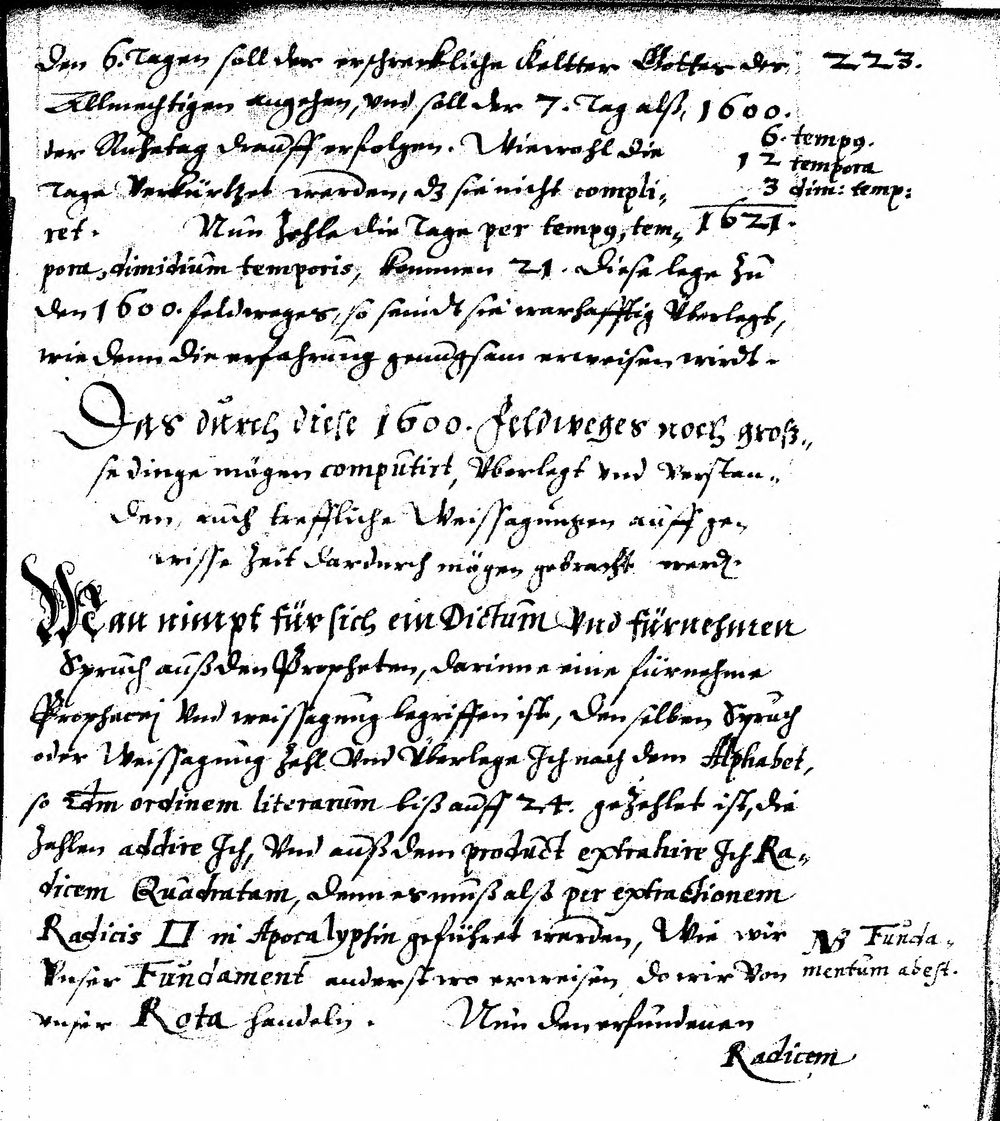 223.
den 6. Tagen soll der erschreckliche Keltter Gottes des
Allmechtigen angehen, vnd soll der 7. Tag alß,
der Ruhetag drauff erfolgen. Wiewohl die
Tage verkürtzet werden, dz sie nicht compli-
ret. Nun Zehle die Tage per tempq, tem-
pora, dimidium temporis, kommen 21. diese lege Zu
den 1600. feldweges, so seindt sie warhafftig Vberlegt,
wie denn die erfahrung genugsam erweisen wirdt.
1600.
6. tempq.
12 tempora
3 dim: temp:
1621.
Das durch diese 1600. Feldweges noch groß-
se dinge mögen computirt, Vberlegt vnd verstan-
den, auch treffliche Weissagungen auff ge-
wisse Zeit dardurch mögen gebracht werdn.
Man nimpt für sich ein Dictum Vnd fürnehmen
Spruch auß den Propheten, darinne eine fürnehme
Prophacej Vnd weissagung begriffen ist, den selben Spruch
oder Weissagung Zehl Vnd Vberlege Ich nach dem Alphabet,
so ordinem literarum biß auff 24. geZehlet ist, die
Zahlen addire Ich, Vnd auß dem product extrahire Ich Ra-
dicem Quadratam, denn es muß alß per extractionem
Radicis □ in Apocalypsin geführet werden, Wie wir
Vnser Fundament anderstwo erweisen, do wir Von
vnser Rota handeln. Nun den erfundenen
NB Funda-
mentum abest.
Radicem